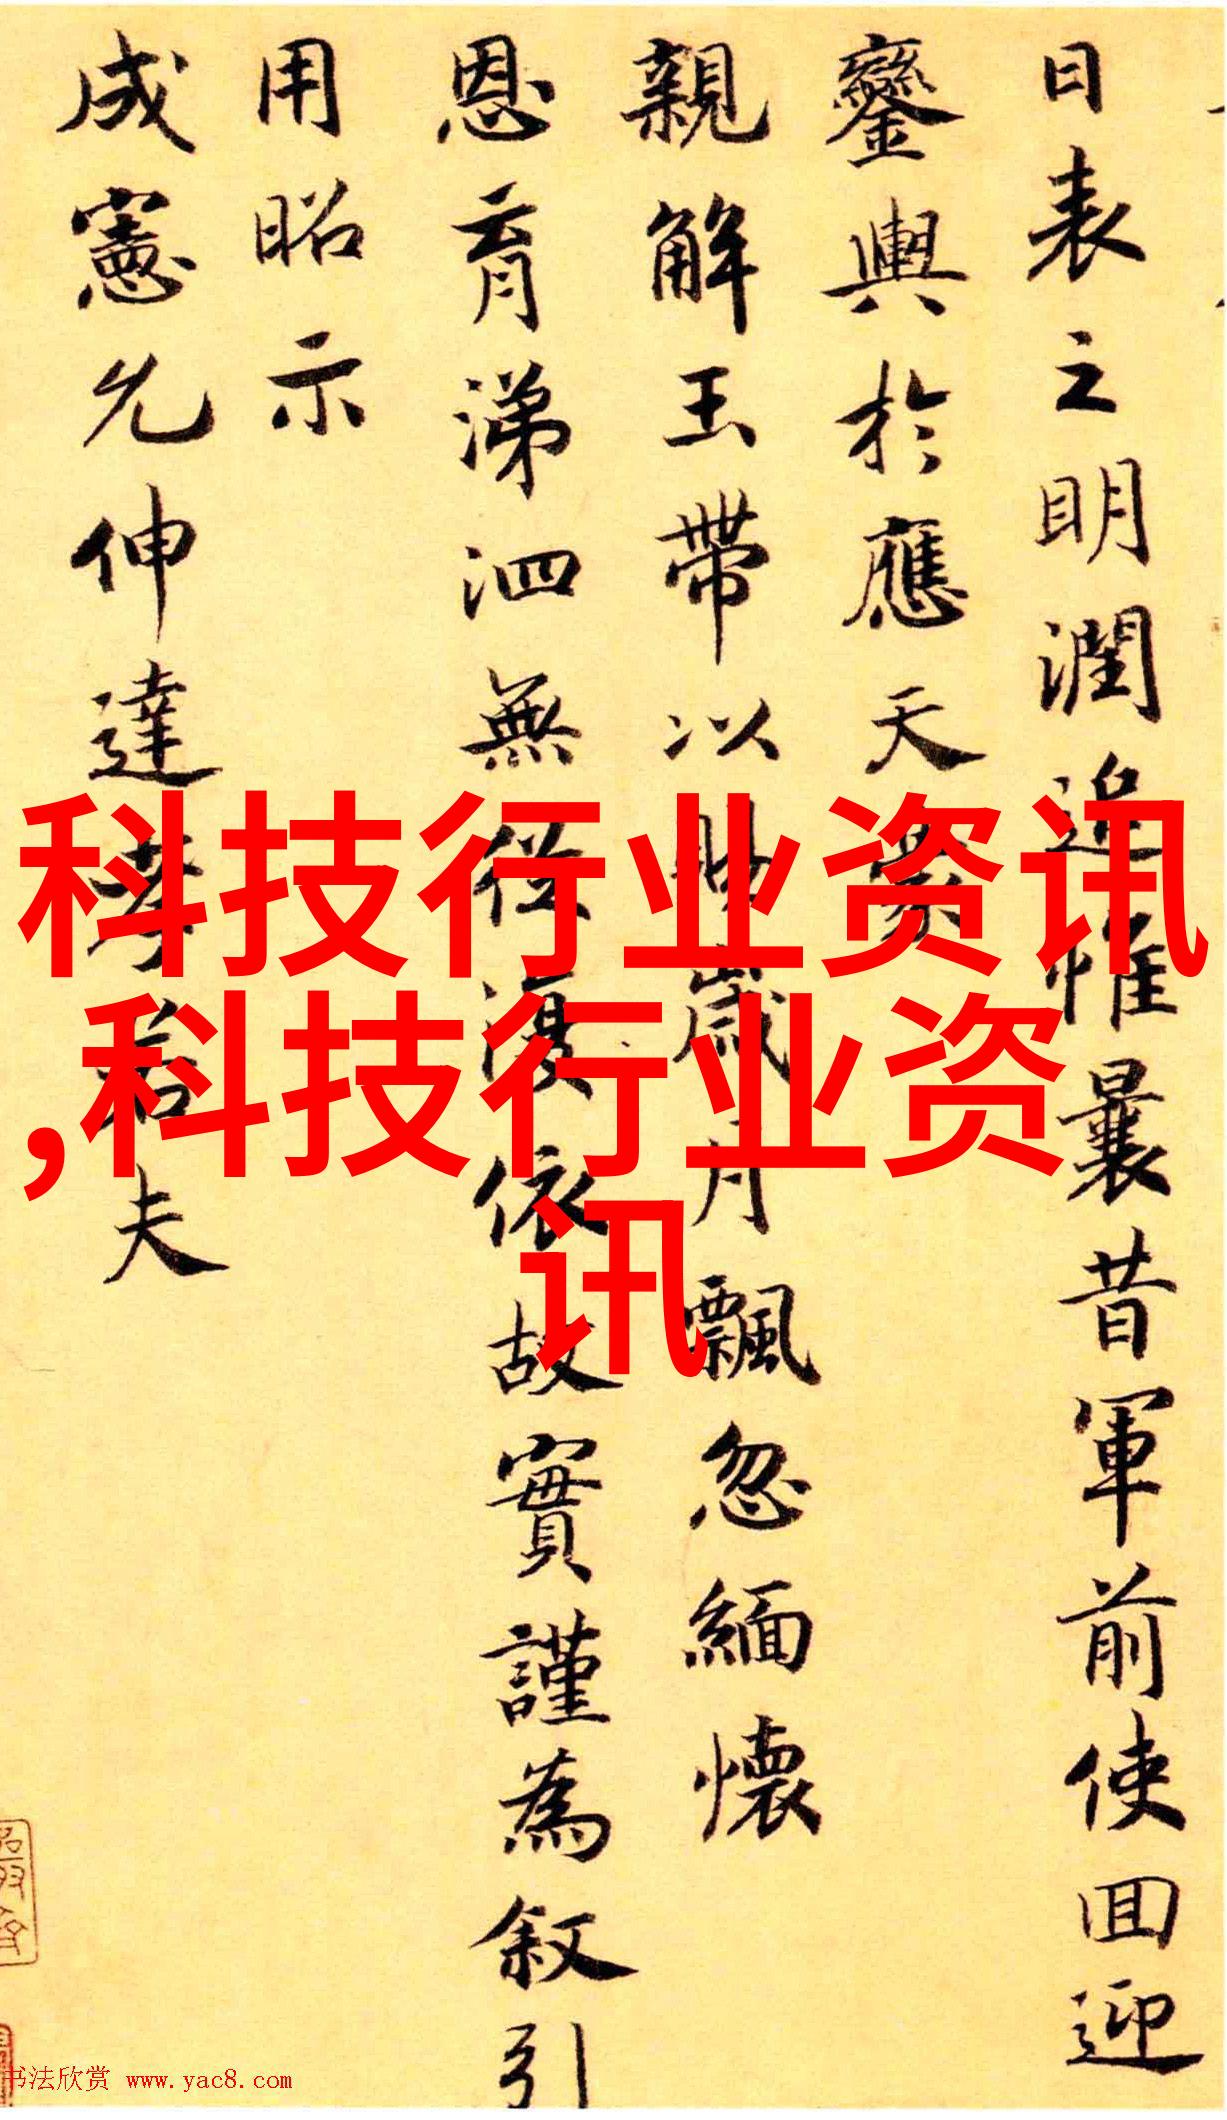 日表之明潤追惟曩昔軍前使回迎
鑾輿於應天
親解玉帶以賜歲月飄忽緬懷
恩育涕泗無從復依故實謹為叙引
用昭示
成憲允伸達孝若夫
科技行业资讯
,科技行业资
讯
书法欣赏 www.yac8.com